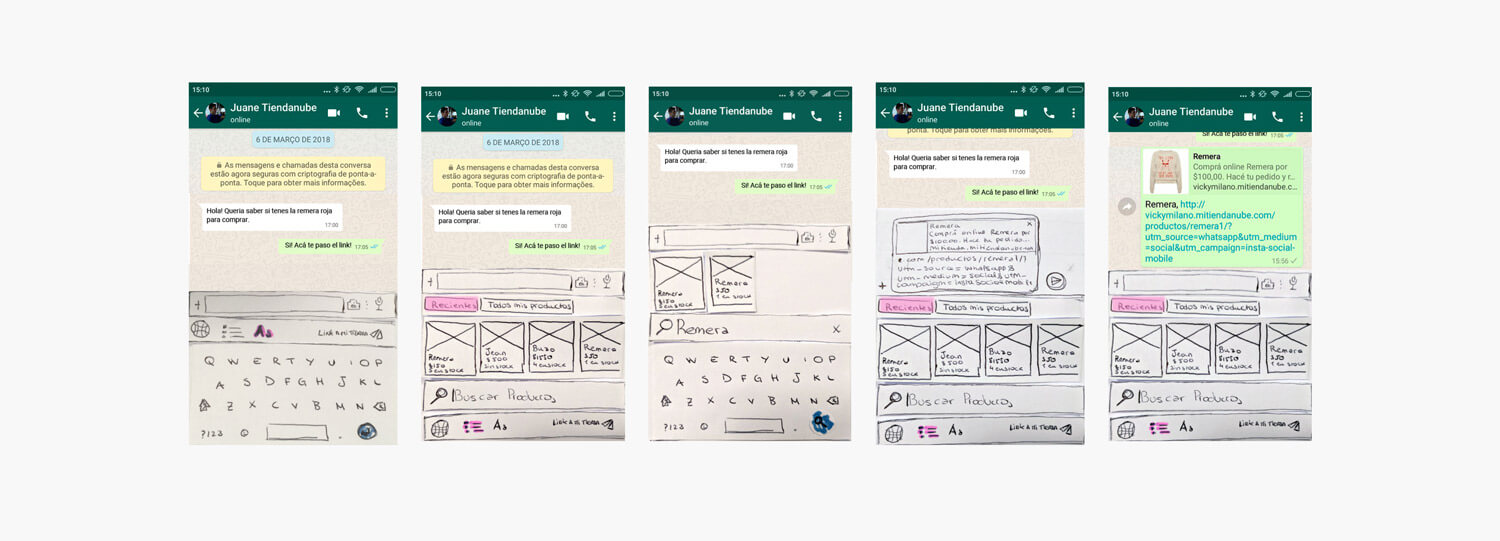 15:10
Juane Tiendanube
online
6 DE MARÇO DE 2018
As mensagens e chamadas desta conversa
estão agora seguras com criptografia de ponta-a-
ponta. Toque para obter mais informações.
Hola! Queria saber si tenes la remera roja
para comprar.
17:00
Si! Acá te paso el link!
17:05
+
As
Link a mi tienda
Q W E R T Y U I O P
A S D F G H J K L
Z X C V B M N
?123
15:10
Juane Tiendanube
online
6 DE MARÇO DE 2018
As mensagens e chamadas desta conversa
estão agora seguras com criptografia de ponta-a-
ponta. Toque para obter mais informações.
Hola! Queria saber si tenes la remera roja
para comprar.
17:00
Si! Acá te paso el link!
17:05
+
Recientes
Todos mis productos
Remera
$150
5 en stock
Jean
$500
sin stock
Buzo
$1550
4 en stock
Remera
350
1 en stock
Buscar Productos
As
Link a mi tienda
15:10
Juane Tiendanube
online
Hola! Queria saber si tenes la remera roja
para comprar.
17:00
Si! Acá te paso el link!
17:05
+
Remera
$150
5 en stock
Remera
350
1 en stock
Remera
X
Q W E R T Y U I O P
A S D F G H J K L
Z X C V B M N
?123
15:10
Juane Tiendanube
online
ponta. Toque para obter mais informações.
Hola! Queria saber si tenes la remera roja
para comprar.
17:00
Si! Acá te paso el link!
17:05
Remera
x
Comprá online Remera por
$100,00. Hacé tu pedido...
mitienda.mitiendanube
com/productos/remera1/?
utm_source=whatsapp&
utm_medium=social&utm_
campaign=insta-social-mobile
+
Recientes
Todos mis productos
Remera
$150
5 en stock
Jean
$500
sin stock
Buzo
$1550
4 en stock
Remera
350
1 en stock
Buscar Productos
As
Link a mi tienda
15:10
Juane Tiendanube
online
Si! Acá te paso el link!
17:05
Remera
Comprá online Remera por
$100,00. Hacé tu pedido y r...
vickymilano.mitiendanube.c...
Remera, http://
vickymilano.mitiendanube.com/
productos/remera1/?
utm_source=whatsapp&utm_medium
=social&utm_campaign=insta-social-
mobile
15:56
+
Recientes
Todos mis productos
Remera
$150
5 en stock
Jean
$500
sin stock
Buzo
$1550
4 en stock
Remera
350
1 en stock
Buscar Productos
As
Link a mi tienda